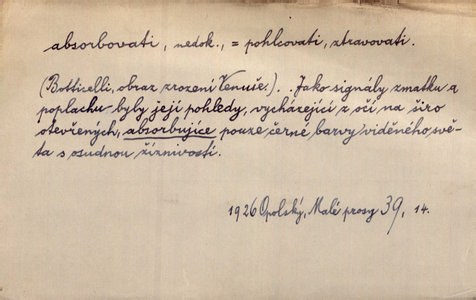 absorbovati, nedok., = pohlcovati, ztravovati.
(Botticelli, obraz zrození Venuše.). Jako signály zmatku a
poplachu byly její pohledy, vycházející z očí na široko
otevřených, absorbujíce pouze černé barvy viděného svě-
ta s osudnou žíznivostí.
1926 Opolský, Malé prosy 39, 14.